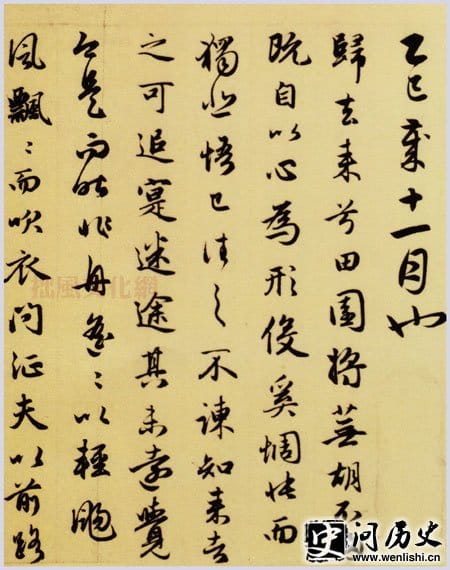 乙巳歲十一月也
歸去来兮田園将蕪胡不
既自以心為形役奚惆悵而
獨悲悟已往之不諫知来者
之可追寔迷途其未遠覺
今是而昨非舟遙〻以輕颺
風飄〻而吹衣問征夫以前路
史问历史
www.wenlishi.cn